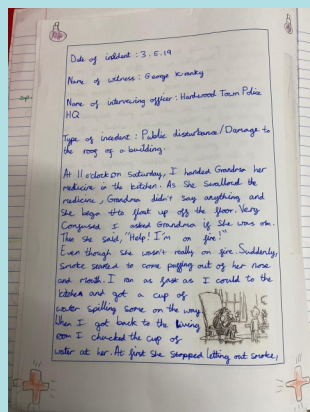 Date of incident : 3.5.19
Name of witness : George Kranky
Name of interviewing officer : Hardwood Town Police
HQ
Type of incedent : Public disturbance/Damage to
the roof of a building.
At 11 o'clock on Saturday, I handed Grandma her
medicine in the kitchen. As she swallowd the
medicine, Grandma didn't say anything and
she began to float up off the floor. Very
Confused I asked Grandma if she was ok.
Then she said, "Help! I'm on fire!"
Even though she wasn't really on fire. Suddenly,
smoke started to come puffing out of her nose
and mouth. I ran as fast as I could to the
kitchen and got a cup of
water spilling some on the way
When I got back to the living
room I chucked the cup of
water at her. At first she stopped letting out smoke,